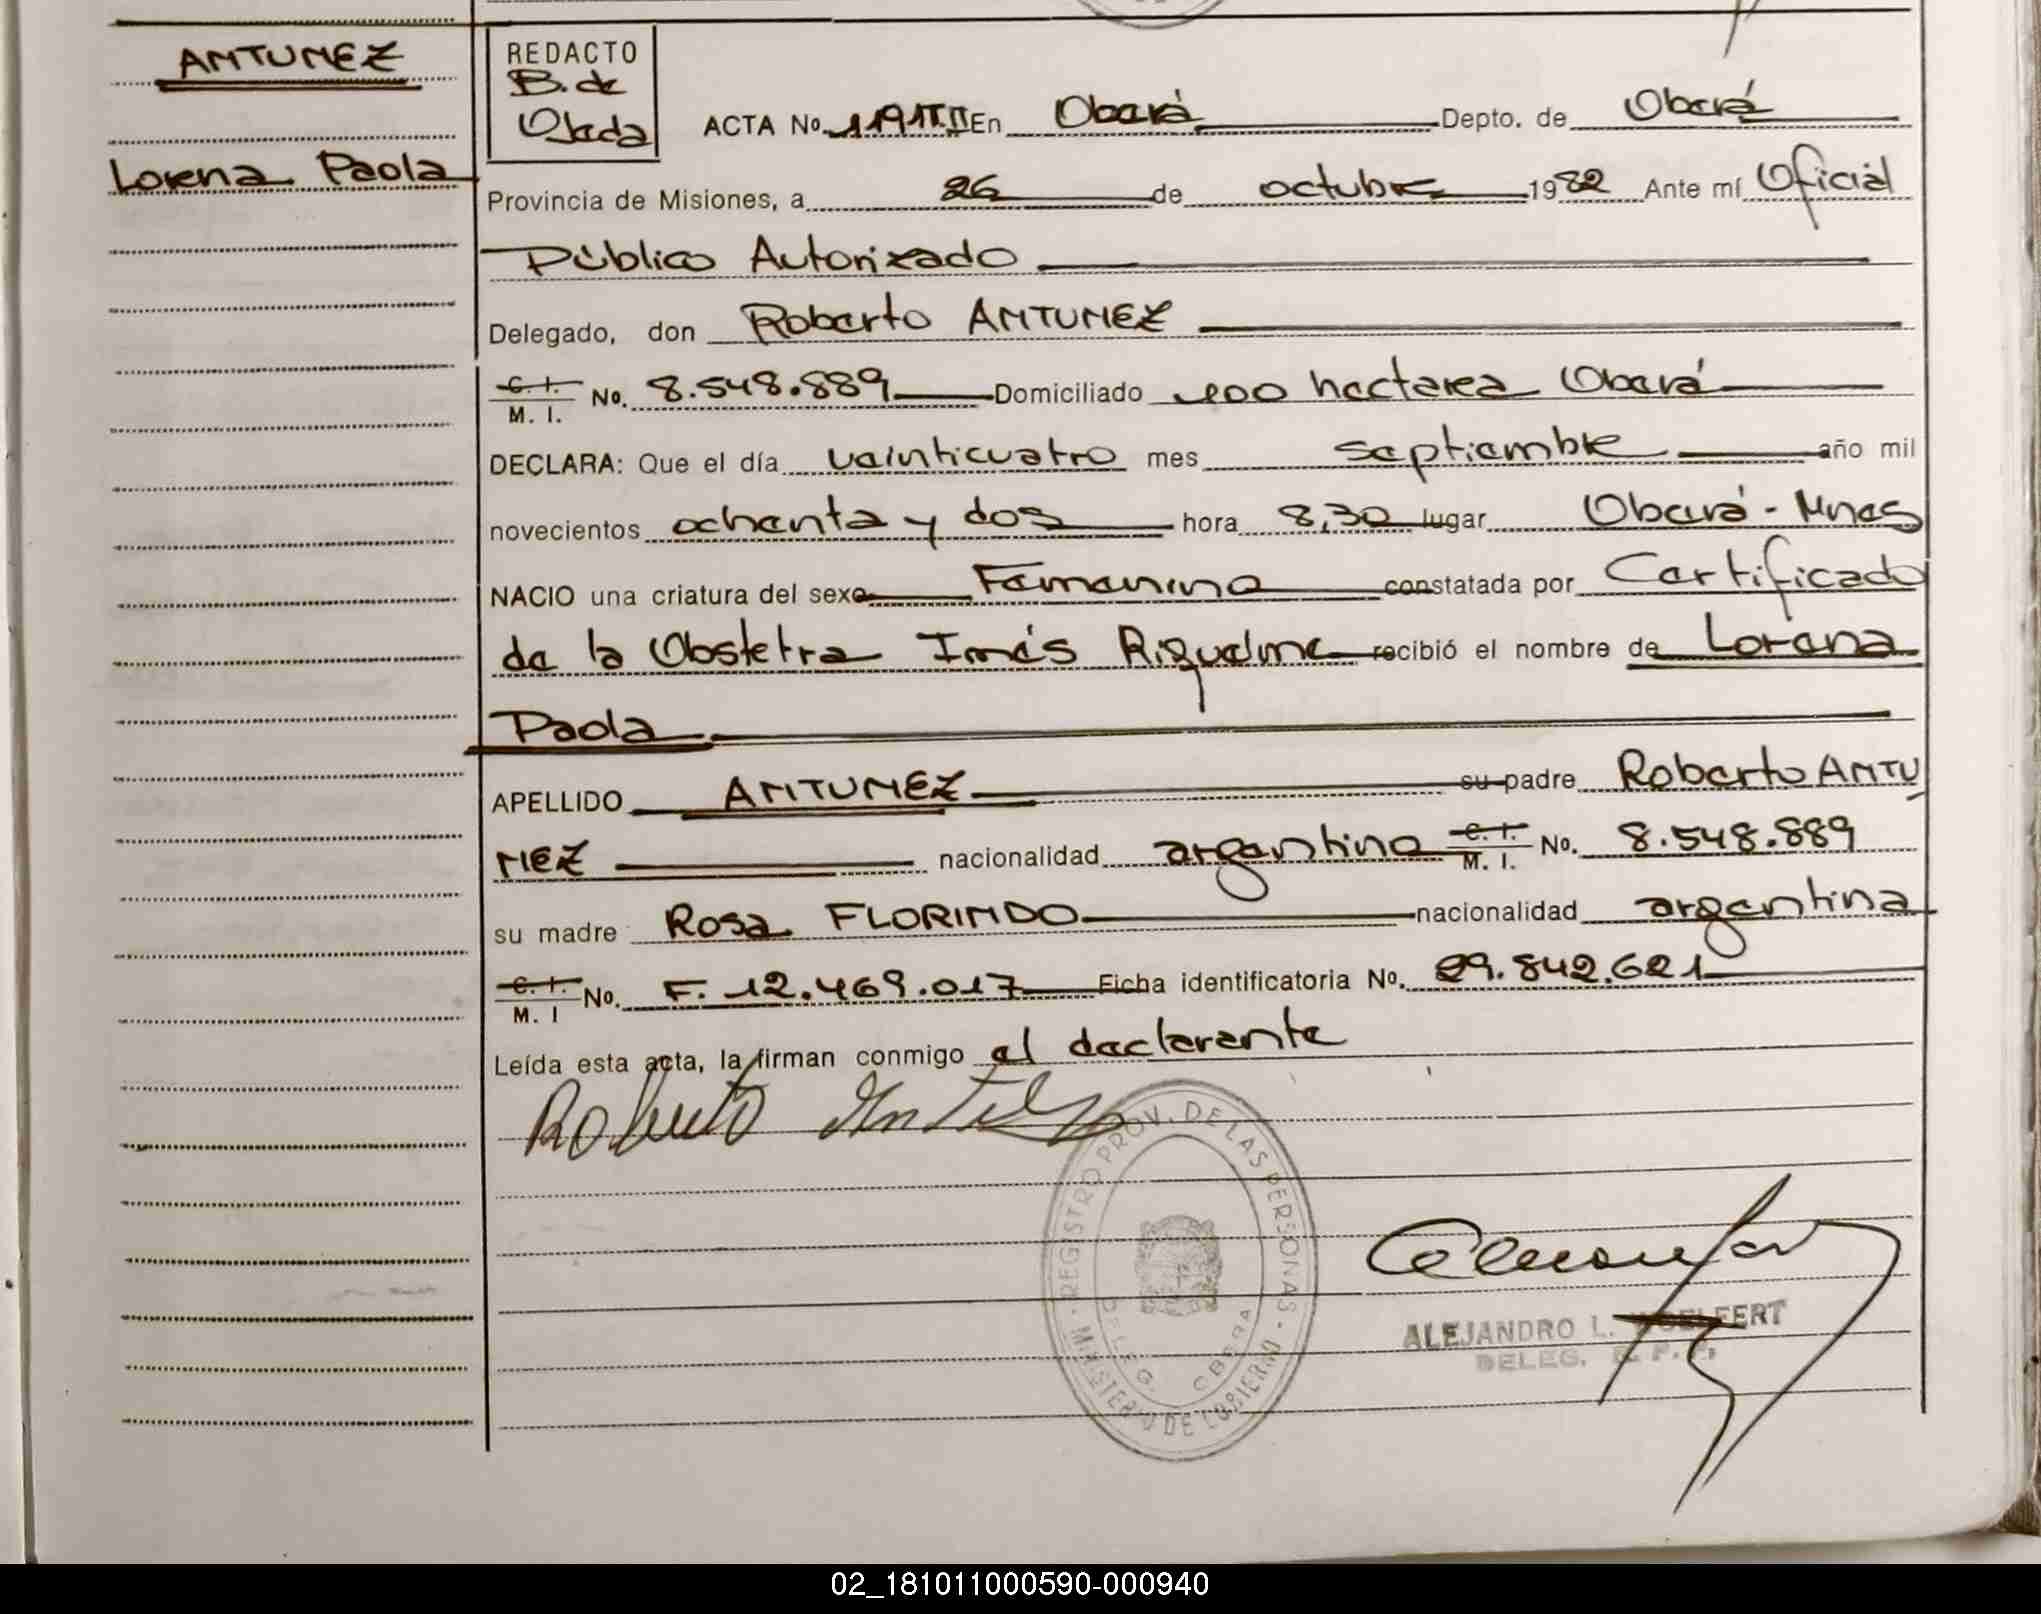 ANTUNEZ
Lorena Paola
REDACTO
B. de
Ojeda
ACTA No. 1191T.II En Oberá Depto. de Oberá
Provincia de Misiones, a 26 de octubre 1982 Ante mí Oficial
Público Autorizado
Delegado, don Roberto ANTUNEZ
C. I.
M. I. No. 8.548.889 Domiciliado 100 hectarea Oberá
DECLARA: Que el día veinticuatro mes septiembre año mil
novecientos ochenta y dos hora 8,30 lugar Oberá - Mnes
NACIO una criatura del sexo Femenino constatada por Certificado
de la Obstetra Inés Riquelme recibió el nombre de Lorena
Paola
APELLIDO ANTUNEZ su padre Roberto ANTU
NEZ nacionalidad argentino C. I. M. I. No. 8.548.889
su madre Rosa FLORINDO nacionalidad argentina
C. I.
M. I No. F. 12.469.017 Ficha identificatoria No. 29.842.621
Leída esta acta, la firman conmigo el declarante
Roberto Antunez
REGISTRO PROV. DE LAS PERSONAS - MINISTERIO DE GOBIERNO
DELEG. OBERA
ALEJANDRO L.
DELEG. R. P. P.
02_181011000590-000940